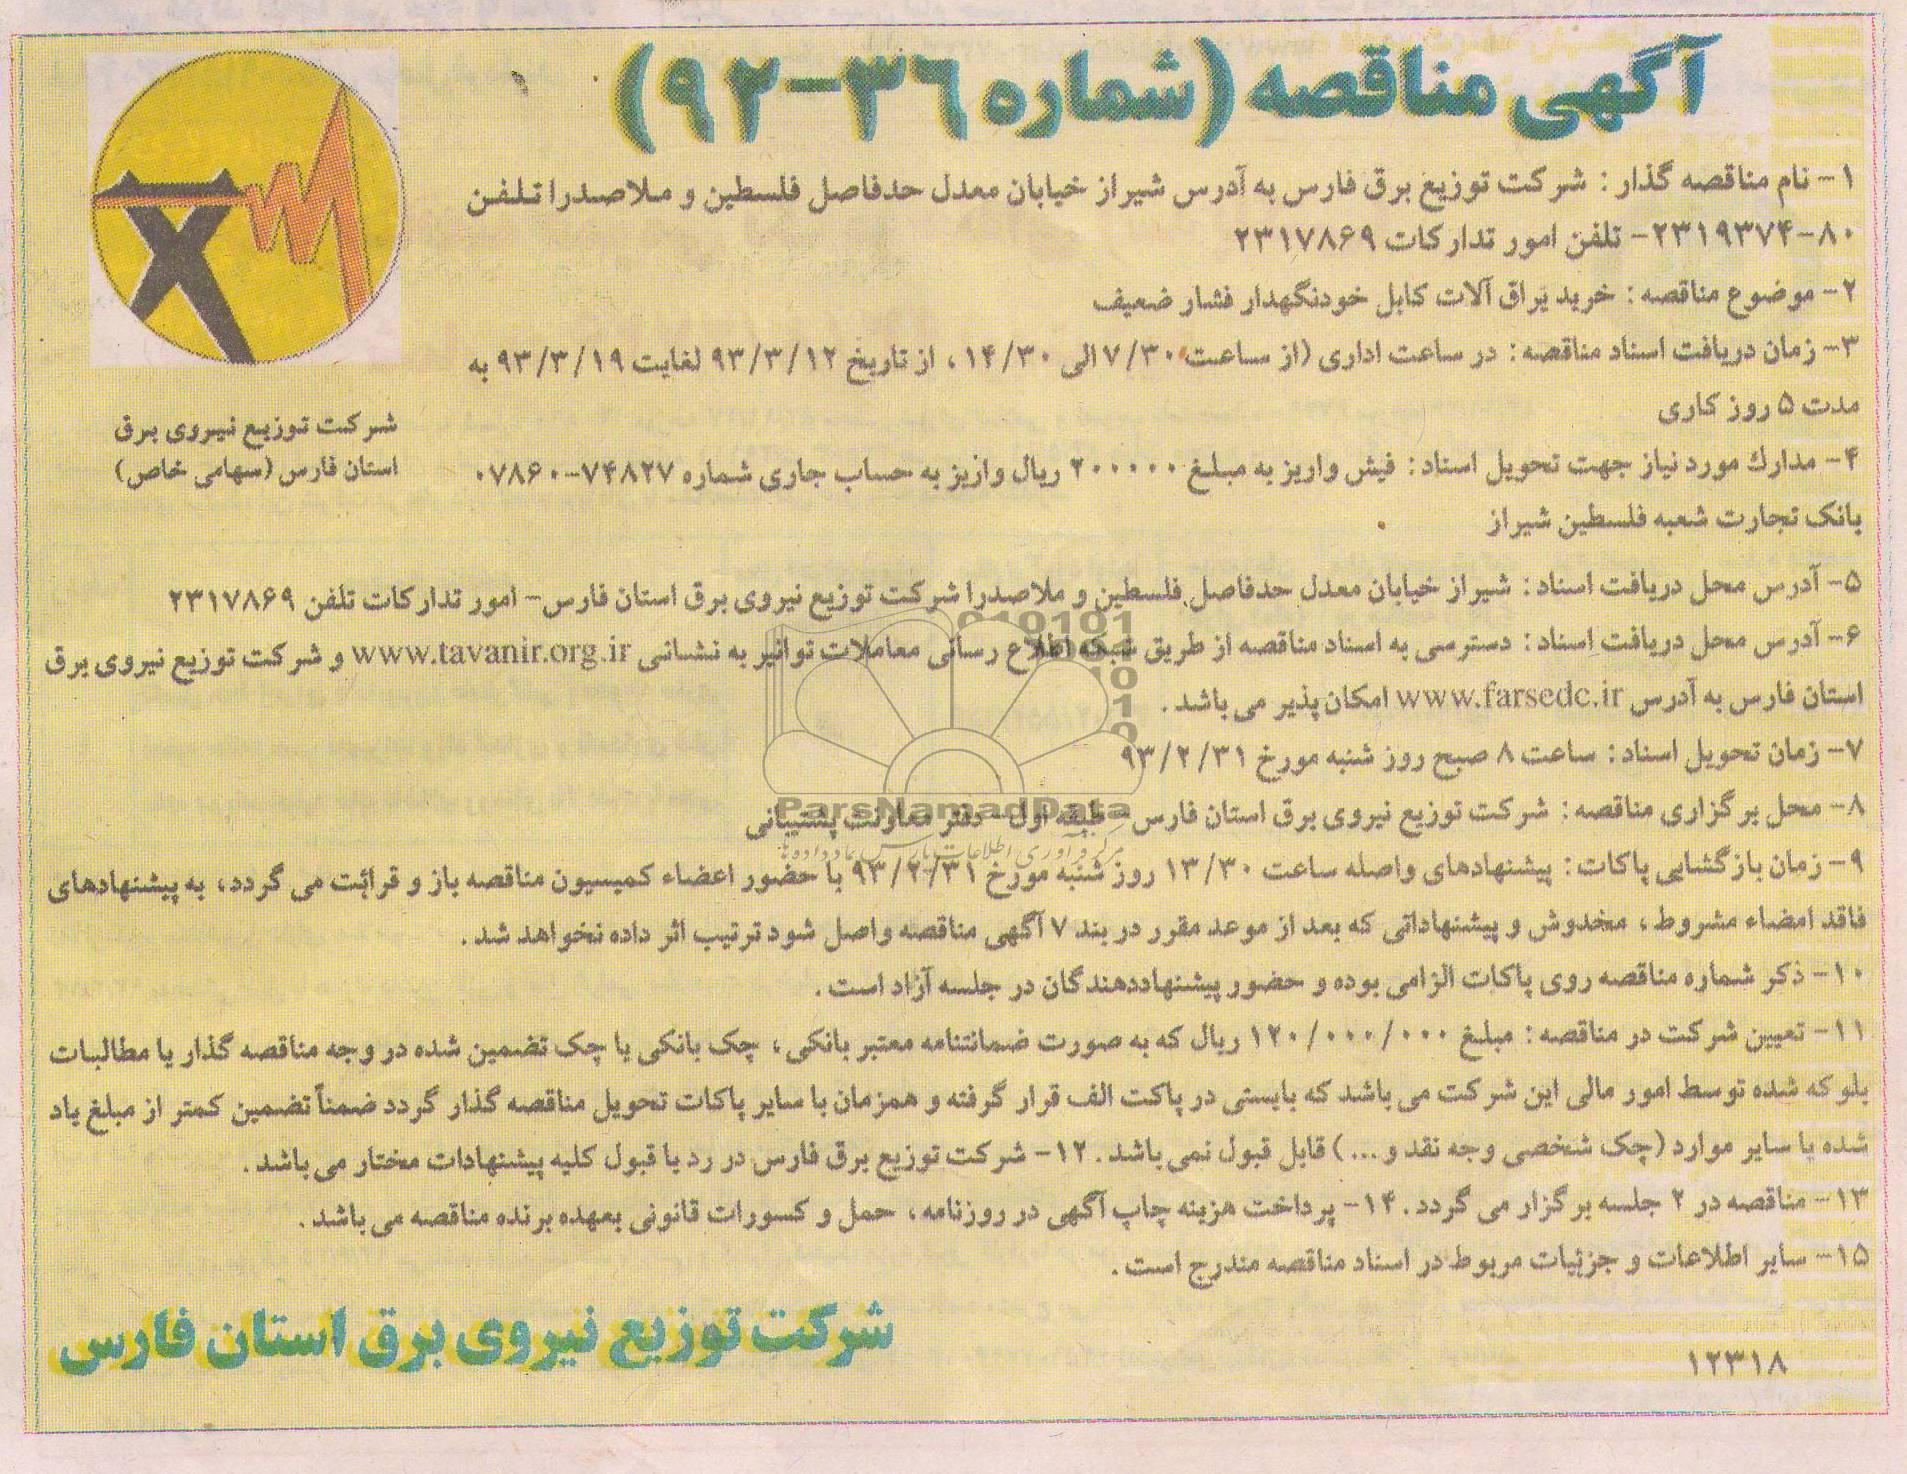 آگهی مناقصه (شماره ۳۶-۹۲)
۱- نام مناقصه گذار : شرکت توزیع برق فارس به آدرس شیراز خیابان معدل حدفاصل فلسطین و ملاصدرا تلفن
۸۰-۲۳۱۹۳۷۴- تلفن امور تدارکات ۲۳۱۷۸۶۹
۲- موضوع مناقصه : خرید یراق آلات کابل خودنگهدار فشار ضعیف
۳- زمان دریافت اسناد مناقصه : در ساعت اداری (از ساعت ۷/۳۰ الی ۱۴/۳۰ ، از تاریخ ۹۳/۳/۱۲ لغایت ۹۳/۳/۱۹ به
مدت ۵ روز کاری
شرکت توزیع نیروی برق
استان فارس (سهامی خاص)
۴- مدارك مورد نیاز جهت تحویل اسناد : فیش واریز به مبلغ ۲۰۰۰۰۰ ریال واریز به حساب جاری شماره ۷۴۸۲۷-۰۷۸۶۰
بانک تجارت شعبه فلسطین شیراز
۵- آدرس محل دریافت اسناد : شیراز خیابان معدل حدفاصل فلسطین و ملاصدرا شرکت توزیع نیروی برق استان فارس- امور تدارکات تلفن ۲۳۱۷۸۶۹
۶- آدرس محل دریافت اسناد : دسترسی به اسناد مناقصه از طریق شبکه اطلاع رسانی معاملات توانیر به نشانی www.tavanir.org.ir و شرکت توزیع نیروی برق
استان فارس به آدرس www.farsedc.ir امکان پذیر می باشد .
۷- زمان تحویل اسناد : ساعت ۸ صبح روز شنبه مورخ ۹۳/۲/۳۱
ParsNamadData
۸- محل برگزاری مناقصه : شرکت توزیع نیروی برق استان فارس- طبقه اول- دفتر معاونت پشتیبانی
مرکز فرآوری اطلاعات پارس نماد داده ها
۹- زمان بازگشایی پاکات : پیشنهادهای واصله ساعت ۱۳/۳۰ روز شنبه مورخ ۹۳/۲/۳۱ با حضور اعضاء کمیسیون مناقصه باز و قرائت می گردد ، به پیشنهادهای
فاقد امضاء مشروط ، مخدوش و پیشنهاداتی که بعد از موعد مقرر در بند ۷ آگهی مناقصه واصل شود ترتیب اثر داده نخواهد شد .
۱۰- ذکر شماره مناقصه روی پاکات الزامی بوده و حضور پیشنهاددهندگان در جلسه آزاد است .
۱۱- تعیین شرکت در مناقصه : مبلغ ۱۲۰/۰۰۰/۰۰۰ ریال که به صورت ضمانتنامه معتبر بانکی ، چک بانکی یا چک تضمین شده در وجه مناقصه گذار یا مطالبات
بلوکه شده توسط امور مالی این شرکت می باشد که بایستی در پاکت الف قرار گرفته و همزمان با سایر پاکات تحویل مناقصه گذار گردد ضمناً تضمین کمتر از مبلغ یاد
شده یا سایر موارد (چک شخصی وجه نقد و ...) قابل قبول نمی باشد . ۱۲- شرکت توزیع برق فارس در رد یا قبول کلیه پیشنهادات مختار می باشد .
۱۳- مناقصه در ۲ جلسه برگزار می گردد . ۱۴- پرداخت هزینه چاپ آگهی در روزنامه ، حمل و کسورات قانونی بعهده برنده مناقصه می باشد .
۱۵- سایر اطلاعات و جزئیات مربوط در اسناد مناقصه مندرج است .
شرکت توزیع نیروی برق استان فارس
۱۲۳۱۸